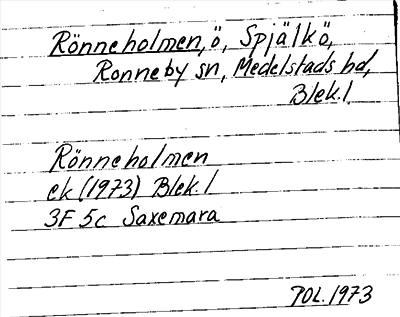 Rönneholmen, ö, Spjälkö,
Ronneby sn, Medelstads hd,
Blek. l
Rönneholmen
ek (1973) Blek. l
3F 5c Saxemara
POL. 1973